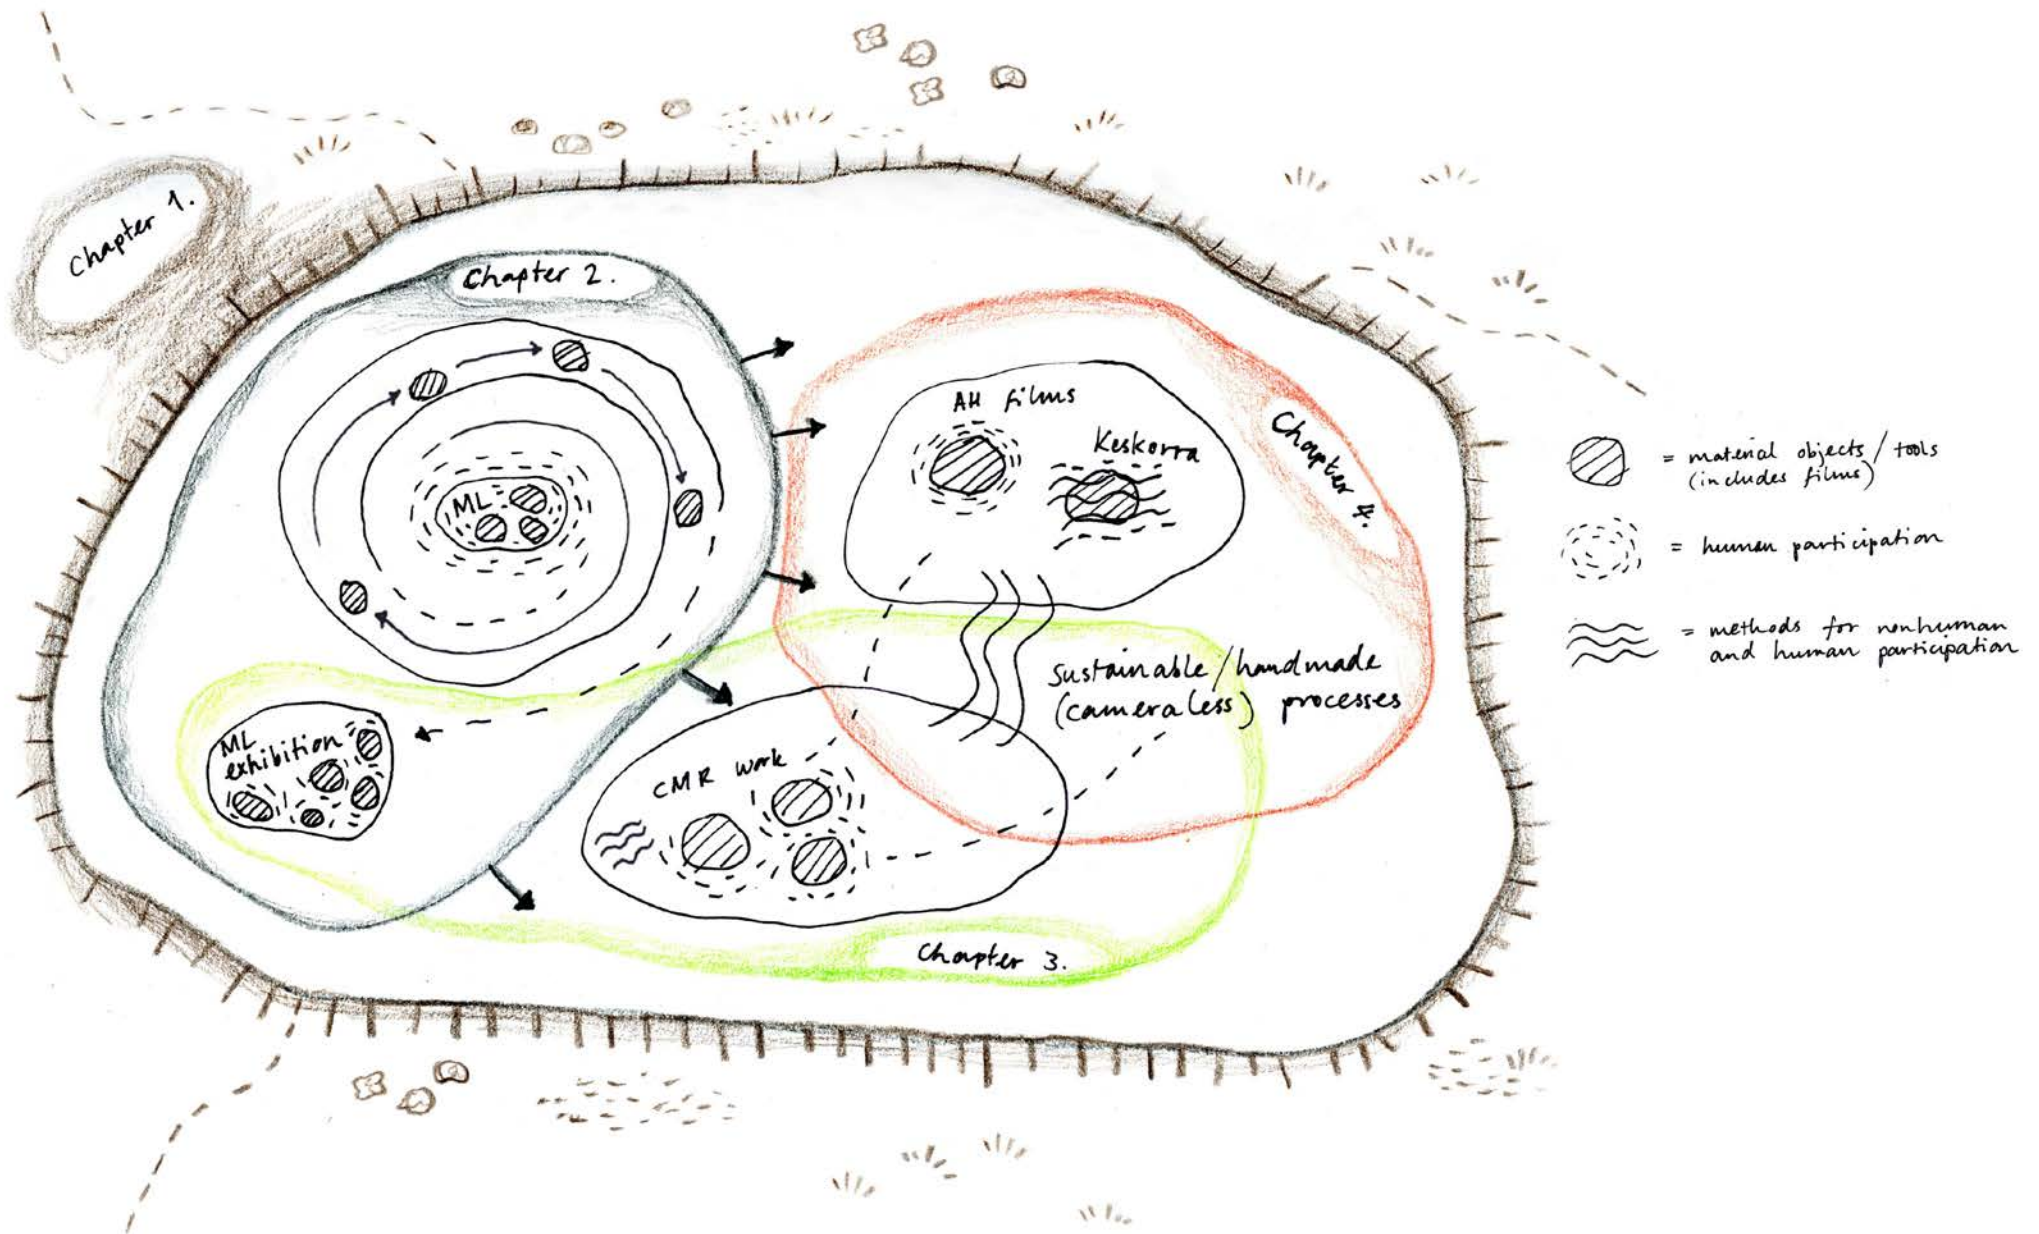 Chapter 1.
Chapter 2.
ML
ML
exhibition
AH films
Keskorra
Chapter 4.
Sustainable/handmade
(cameraless) processes
CMR work
Chapter 3.
= material objects/tools
(includes films)
= human participation
= methods for nonhuman
and human participation